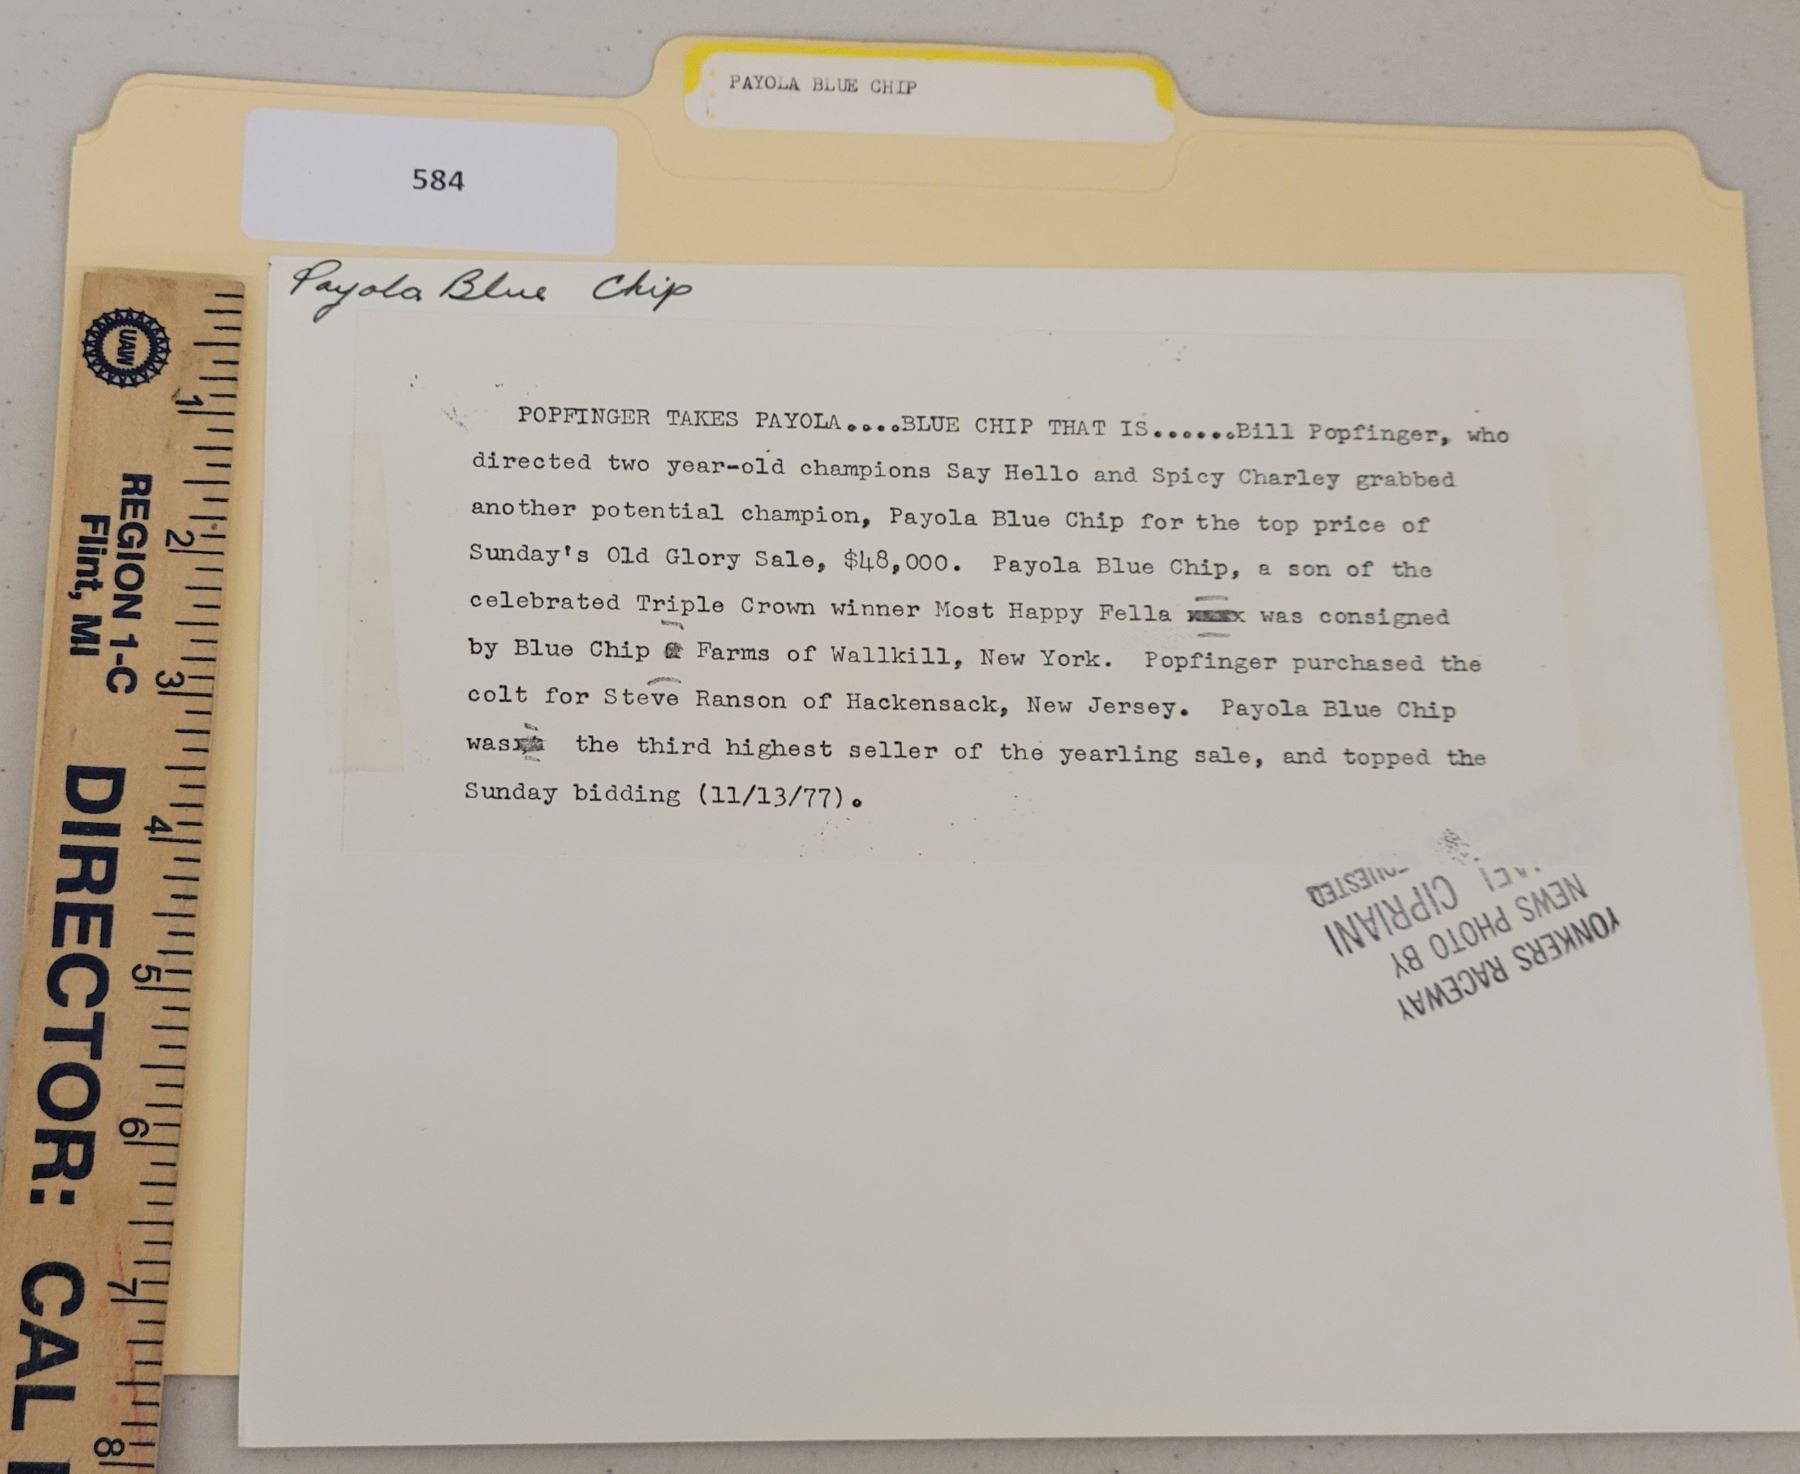 PAYOLA BLUE CHIP
584
Payola Blue Chip
POPFINGER TAKES PAYOLA....BLUE CHIP THAT IS......Bill Popfinger, who
directed two year-old champions Say Hello and Spicy Charley grabbed
another potential champion, Payola Blue Chip for the top price of
Sunday's Old Glory Sale, $48,000. Payola Blue Chip, a son of the
celebrated Triple Crown winner Most Happy Fella was consigned
by Blue Chip Farms of Wallkill, New York. Popfinger purchased the
colt for Steve Ranson of Hackensack, New Jersey. Payola Blue Chip
was the third highest seller of the yearling sale, and topped the
Sunday bidding (11/13/77).
YONKERS RACEWAY
NEWS PHOTO BY
CIPRIANI
UAW
REGION 1-C
Flint, MI
DIRECTOR: CAL
1
2
3
4
5
6
7
8